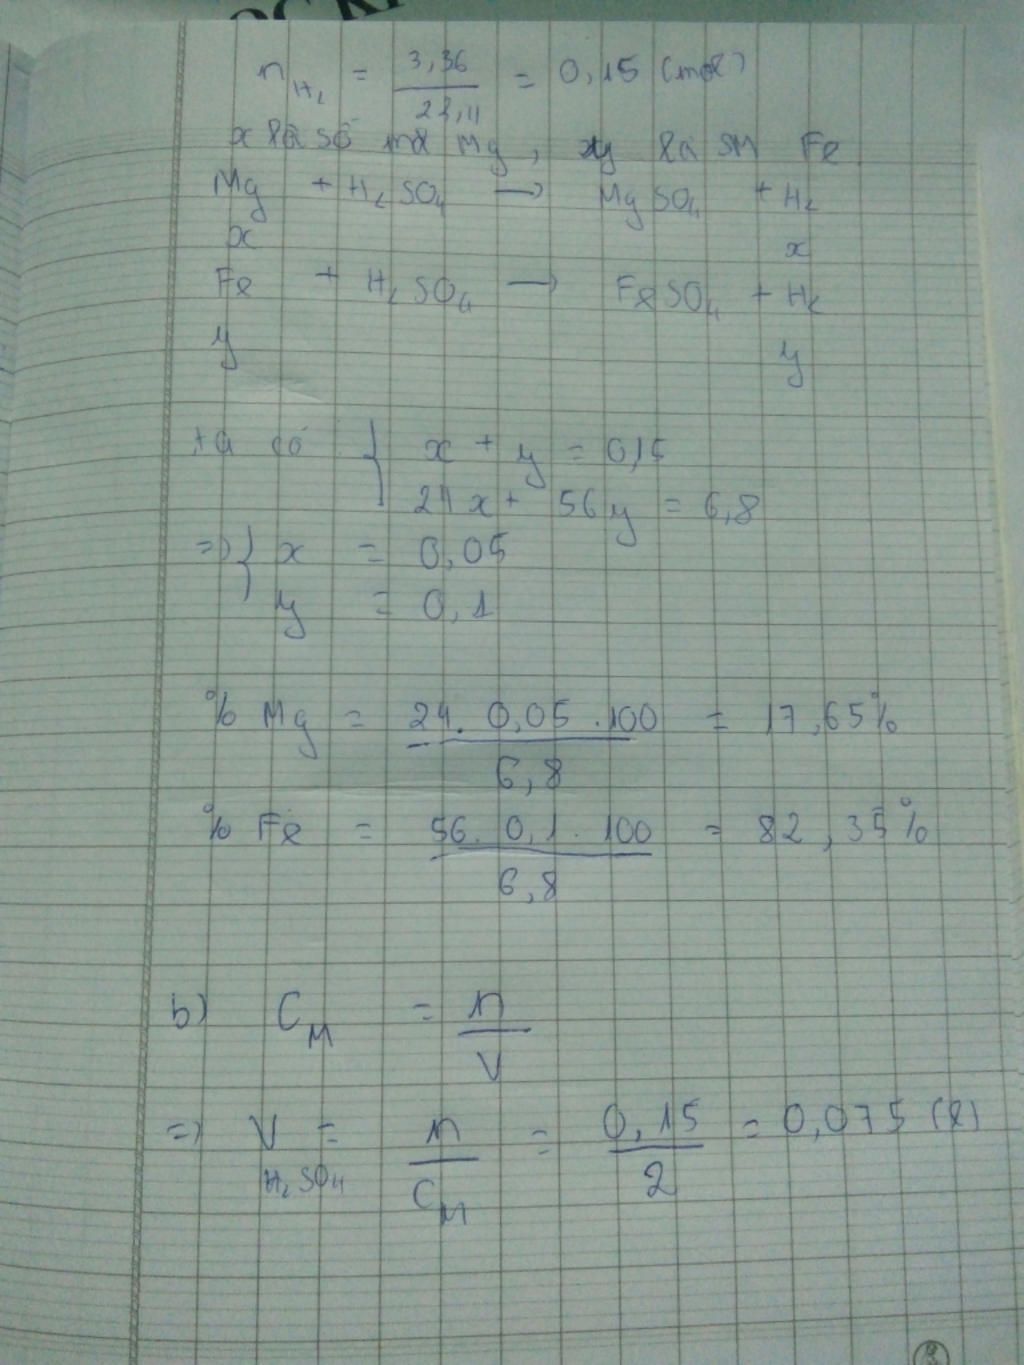 n_H₂ = 3,36 / 22,4 = 0,15 (mol)
x là số mol Mg, y là SM Fe
Mg + H₂SO₄ → MgSO₄ + H₂
x x
Fe + H₂SO₄ → FeSO₄ + H₂
y y
ta có { x + y = 0,15
24x + 56y = 6,8
=> { x = 0,05
y = 0,1
% Mg = 24. 0,05 .100 / 6,8 = 17,65%
% Fe = 56. 0,1. 100 / 6,8 = 82,35%
b) C_M = n / V
=> V_H₂SO₄ = n / C_M = 0,15 / 2 = 0,075 (l)